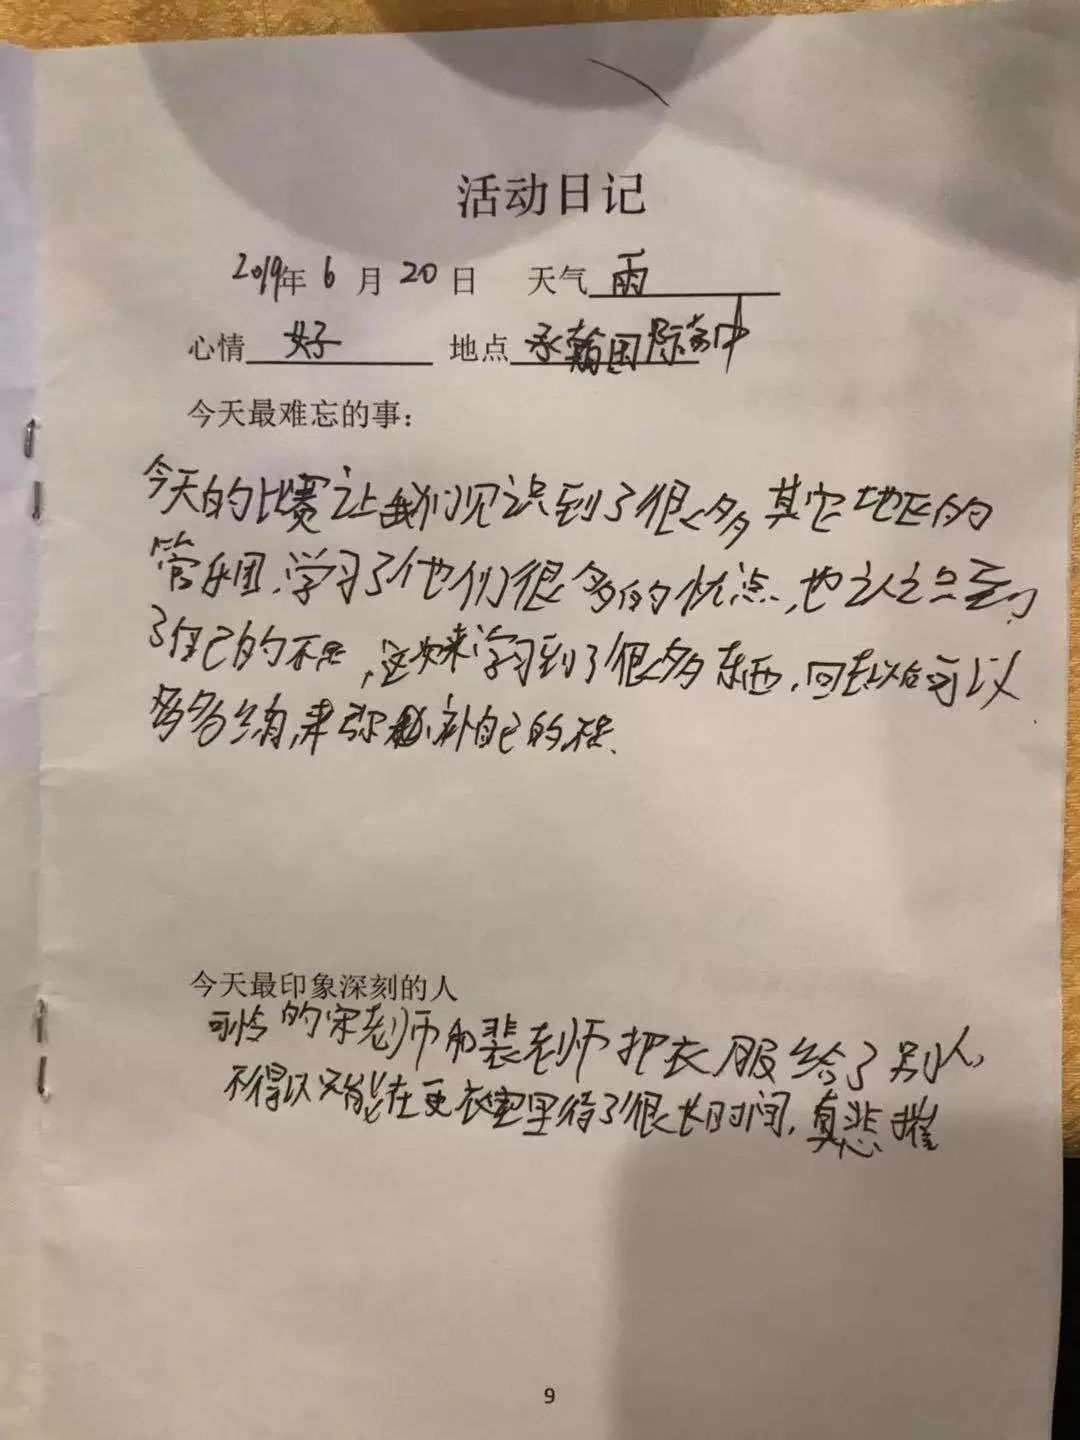 活动日记
2019年 6 月 20 日 天气 雨
心情 好 地点 承翰国际高中
今天最难忘的事：
今天的比赛让我们见识到了很多其它地区的
管乐团，学习了他们很多的优点，也认识到
了自己的不足，这次来学习到了很多东西，回去以后可以
多多练，来弥补自己的不足.
今天最印象深刻的人
可怜的宋老师和裴老师把衣服给了别人，
不得以只能在更衣室里待了很长时间，真悲摧
9